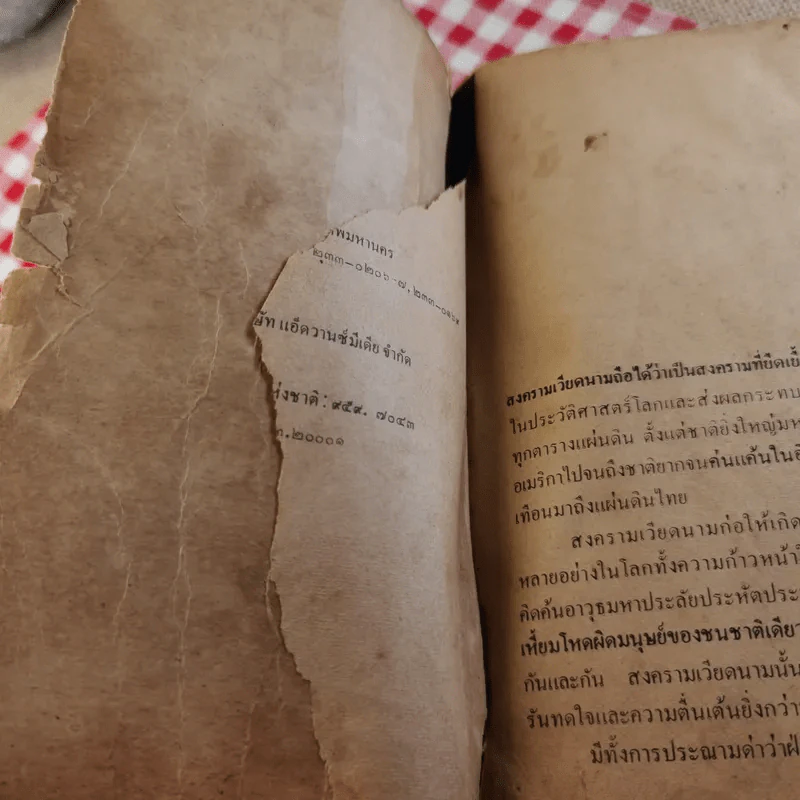 พมหานคร
๒๓๓-๐๒๐๖-๗, ๒๓๓-๐๑๖๙
ษัท แอ็ดวานซ์มีเดีย จำกัด
ห่งชาติ : ๙๕๙. ๗๐๔๓
๓.๒๐๐๐๑
สงครามเวียดนามถือได้ว่าเป็นสงครามที่ยืดเยื้
ในประวัติศาสตร์โลกและส่งผลกระทบ
ทุกตารางแผ่นดิน ตั้งแต่ชาติยิ่งใหญ่มห
อเมริกาไปจนถึงชาติยากจนค่นแค้นในอิ
เทือนมาถึงแผ่นดินไทย
สงครามเวียดนามก่อให้เกิด
หลายอย่างในโลกทั้งความก้าวหน้าใ
คิดค้นอาวุธมหาประลัยประหัตประ
เหี้ยมโหดผิดมนุษย์ของชนชาติเดียว
กันและกัน สงครามเวียดนามนั้น
รันทดใจและความตื่นเต้นยิ่งกว่า
มีทั้งการประณามด่าว่าฝ่